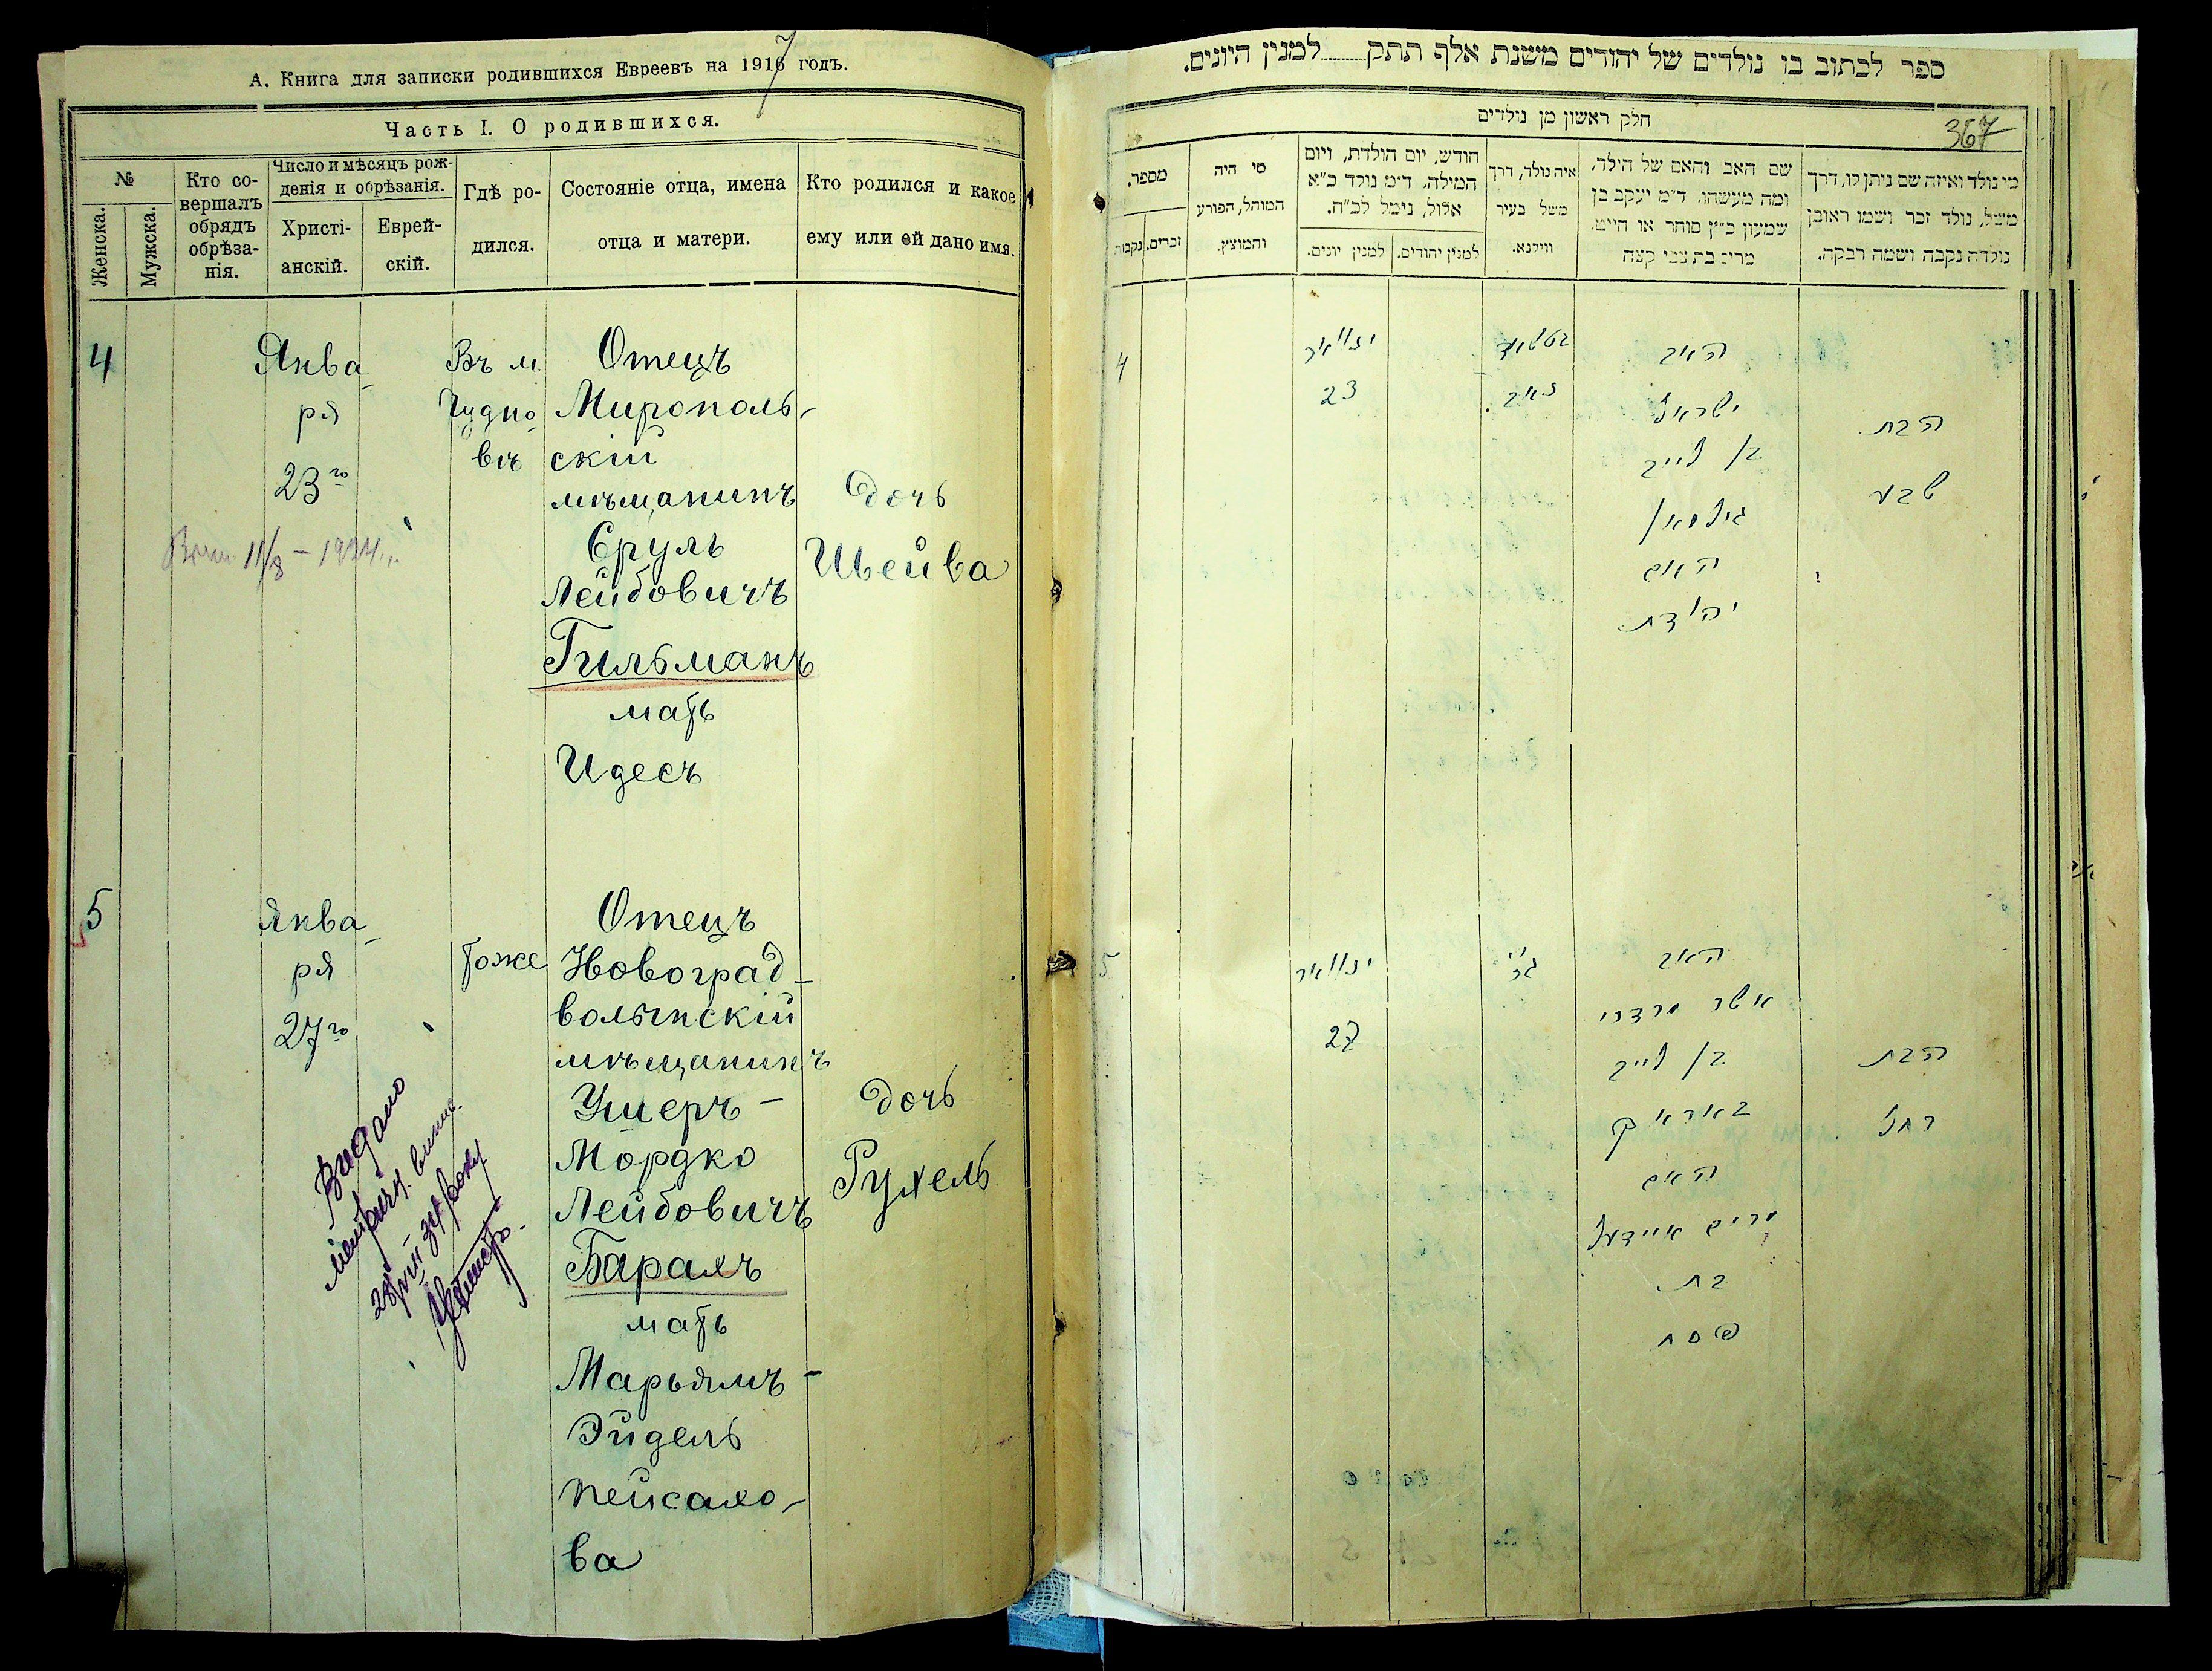 А. Книга для записки родившихся Евреевъ на 1917 годъ.
Часть I. О родившихся.
№
Женска.
Мужска.
Кто со-
вершалъ
обрядъ
обрѣза-
нія.
Число и мѣсяцъ рож-
денія и обрѣзанія.
Христі-
анскій.
Еврей-
скій.
Гдѣ ро-
дился.
Состояніе отца, имена
отца и матери.
Кто родился и какое
ему или ей дано имя.
4
Янва-
ря
23го
11/8 – 1934
Въ м.
Чудно-
вѣ
Отецъ
Мирополь-
скій
мѣщанинъ
Сруль
Лейбовичъ
Гильманъ
мать
Идесъ
дочь
Шейва
5
Янва-
ря
27го
Видано
тоже
Отецъ
Новоград-
волынскій
мѣщанинъ
Ушеръ-
Мордко
Лейбовичъ
Барахъ
мать
Марьямъ-
Эйдель
Пейсахо-
ва
дочь
Рухель
ספר לכתוב בו נולדים של יהודים משנת אלף תתק למנין היונים.
חלק ראשון מן נולדים
367
מספר.
זכרים.
נקבות
מי היה
המוהל, הפורע
והמוצץ.
חודש, יום הולדת, ויום
המילה, ד״מ נולד כ״א
אלול, נימל לכ״ח.
למנין יונים.
למנין יהודים.
איה נולד, דרך
משל בעיר
ווילנא.
שם האב והאם של הילד,
ומה מעשהו. ד״מ יעקב בן
שמעון כ״ץ סוחר או חייט.
מרים בת צבי קצה
מי נולד ואיזה שם ניתן לו, דרך
משל, נולד זכר ושמו ראובן
נולדה נקבה ושמה רבקה.
4
ינוואר
23
האב
ישראל
בן לייב
גילמאן
האם
יהודת
הבת
שבע
5
ינוואר
27
האב
אשר מרדכי
בן לייב
באראק
האם
מרים איידעל
בת
פסח
הבת
רחל